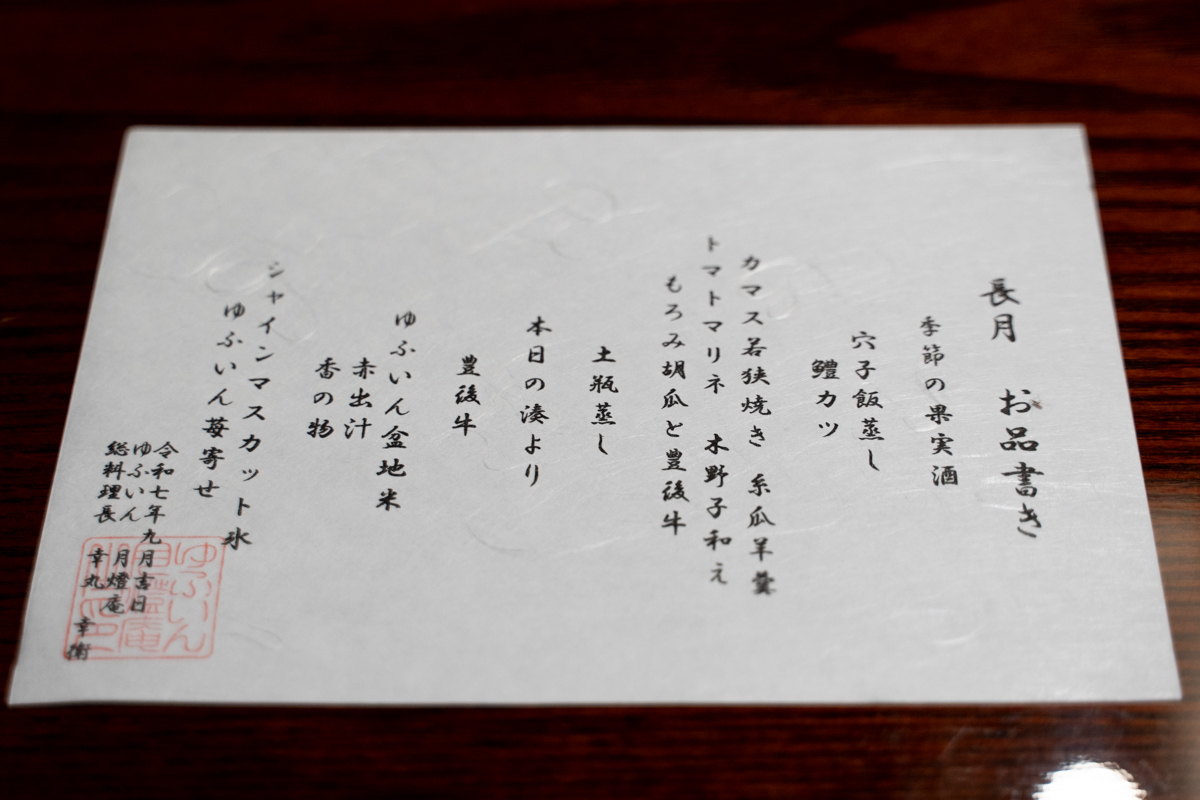 長月 お品書き
季節の果実酒
穴子飯蒸し
鱧カツ
カマス若狭焼き 糸瓜羊羹
トマトマリネ 木野子和え
もろみ胡瓜と豊後牛
土瓶蒸し
本日の湊より
豊後牛
ゆふいん盆地米
赤出汁
香の物
シャインマスカット氷
ゆふいん苺寄せ
令和七年九月吉日
ゆふいん 月燈庵
総料理長 幸丸 幸衛
ゆふいん
月燈庵